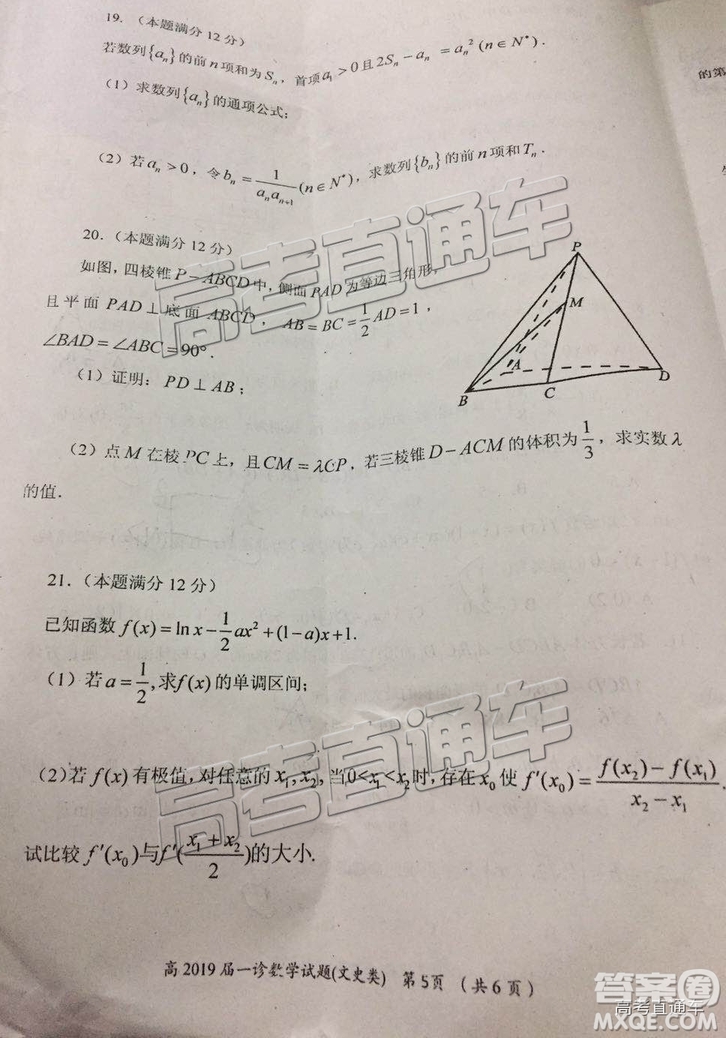 19.（本题满分12分）
若数列{aₙ}的前n项和为Sₙ，首项a₁>0且2Sₙ-aₙ=aₙ²(n∈N*).
（1）求数列{aₙ}的通项公式；
（2）若aₙ>0，令bₙ=1/(aₙaₙ₊₁)(n∈N*)，求数列{bₙ}的前n项和Tₙ.
20.（本题满分12分）
如图，四棱锥P-ABCD中，侧面PAD为等边三角形，
且平面PAD⊥底面ABCD，AB=BC=1/2AD=1，
∠BAD=∠ABC=90°.
（1）证明：PD⊥AB；
P
M
A
D
B
C
（2）点M在棱PC上，且CM=λCP，若三棱锥D-ACM的体积为1/3，求实数λ
的值.
21.（本题满分12分）
已知函数f(x)=lnx-1/2ax²+(1-a)x+1.
（1）若a=1/2,求f(x)的单调区间；
（2）若f(x)有极值，对任意的x₁,x₂,当0<x₁<x₂时,存在x₀使f′(x₀)=(f(x₂)-f(x₁))/(x₂-x₁).
试比较f′(x₀)与f′((x₁+x₂)/2)的大小.
高2019届一诊数学试题(文史类) 第5页（共6页）
的第
高考直通车
高考直通车
答案卷
高考直通车
MXQE.COM